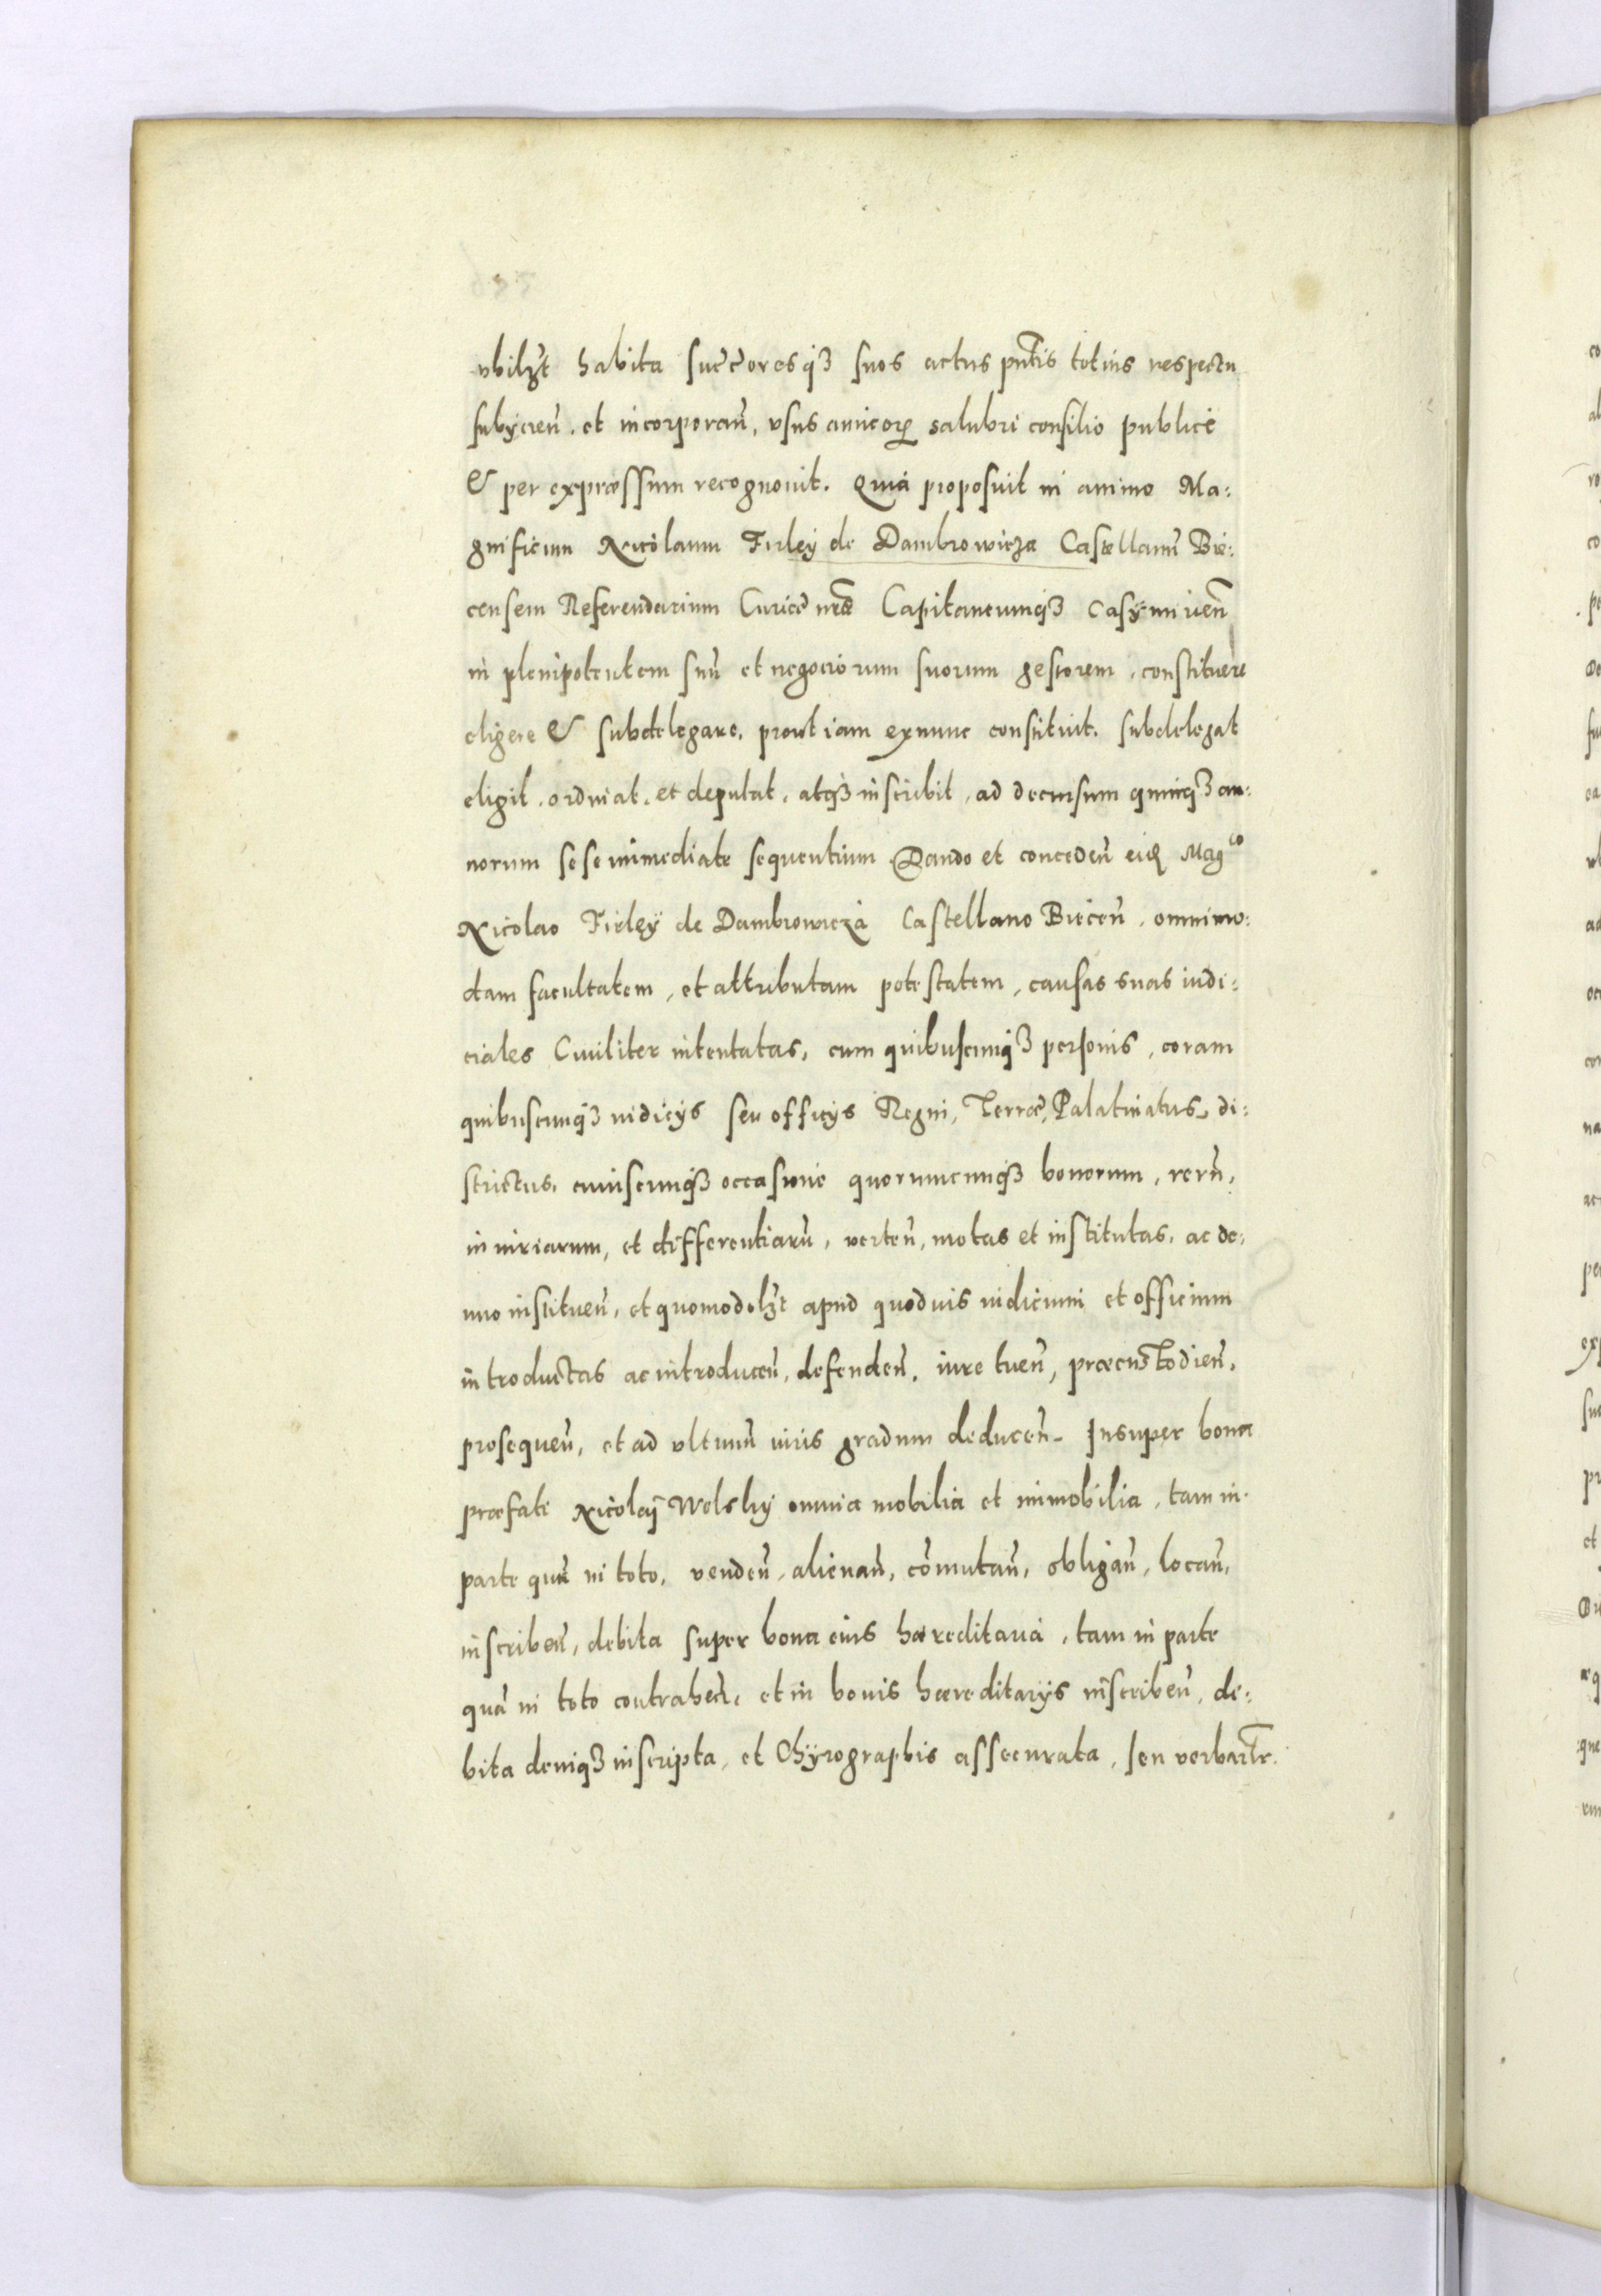 vbilʒt habita succ̃oresqʒ suos actus pñtis totius respectu
subÿcieñ. et incorporañ, vsus amicorꝝ salubri consilio publice
& per expræssum recognouit. Quia proposuit in animo Ma:
gnificum Nicolaum Firleÿ de Dambrowicza Castellanũ Bie:
censem Referendarium Curiæ nr̃æ Capitaneumqʒ Casÿmireñ
in plenipotentem suũ et negociorum suorum gestorem, constituere
eligere & subdelegare, prout iam exnunc constituit. subdelegat
eligit, ordinat, et deputat, atqʒ inscribit, ad decursum quinqʒ an:
norum sese immediate sequentium Dando et concedeñ eid Magco
Nicolao Firleÿ de Dambrowicza Castellano Bieceñ, omnimo:
dam facultatem, et attributam potestatem, causas suas iudi:
ciales Ciuiliter intentatas, cum quibuscunqʒ personis, coram
quibuscunqʒ iudicÿs seu officÿs Regni, Terræ, Palatinatus, di:
strictus, cuiuscunqʒ occasione quorumcunqʒ bonorum, rerũ,
iniuriarum, et differentiarũ, verteñ, motas et institutas, ac de:
nuo institueñ, et quomodolʒt apud quoduis iudicium et officium
introductas ac introduceñ, defendeñ, iure tueñ, præcustodieñ,
prosequeñ, et ad vltimũ iuris gradum deduceñ. Insuper bona
præfati Nicolaÿ Wolsky omnia mobilia et immobilia, tam in
parte quã in toto, vendeñ, alienañ, cõmutañ, obligañ, locañ,
inscribeñ, debita super bona eius hæreditaria, tam in parte
quã in toto contraheñ, et in bonis hæreditarÿs inscribeñ, de:
bita deniqʒ inscripta, et Chÿrographis assecurata, seu verbaltr̃